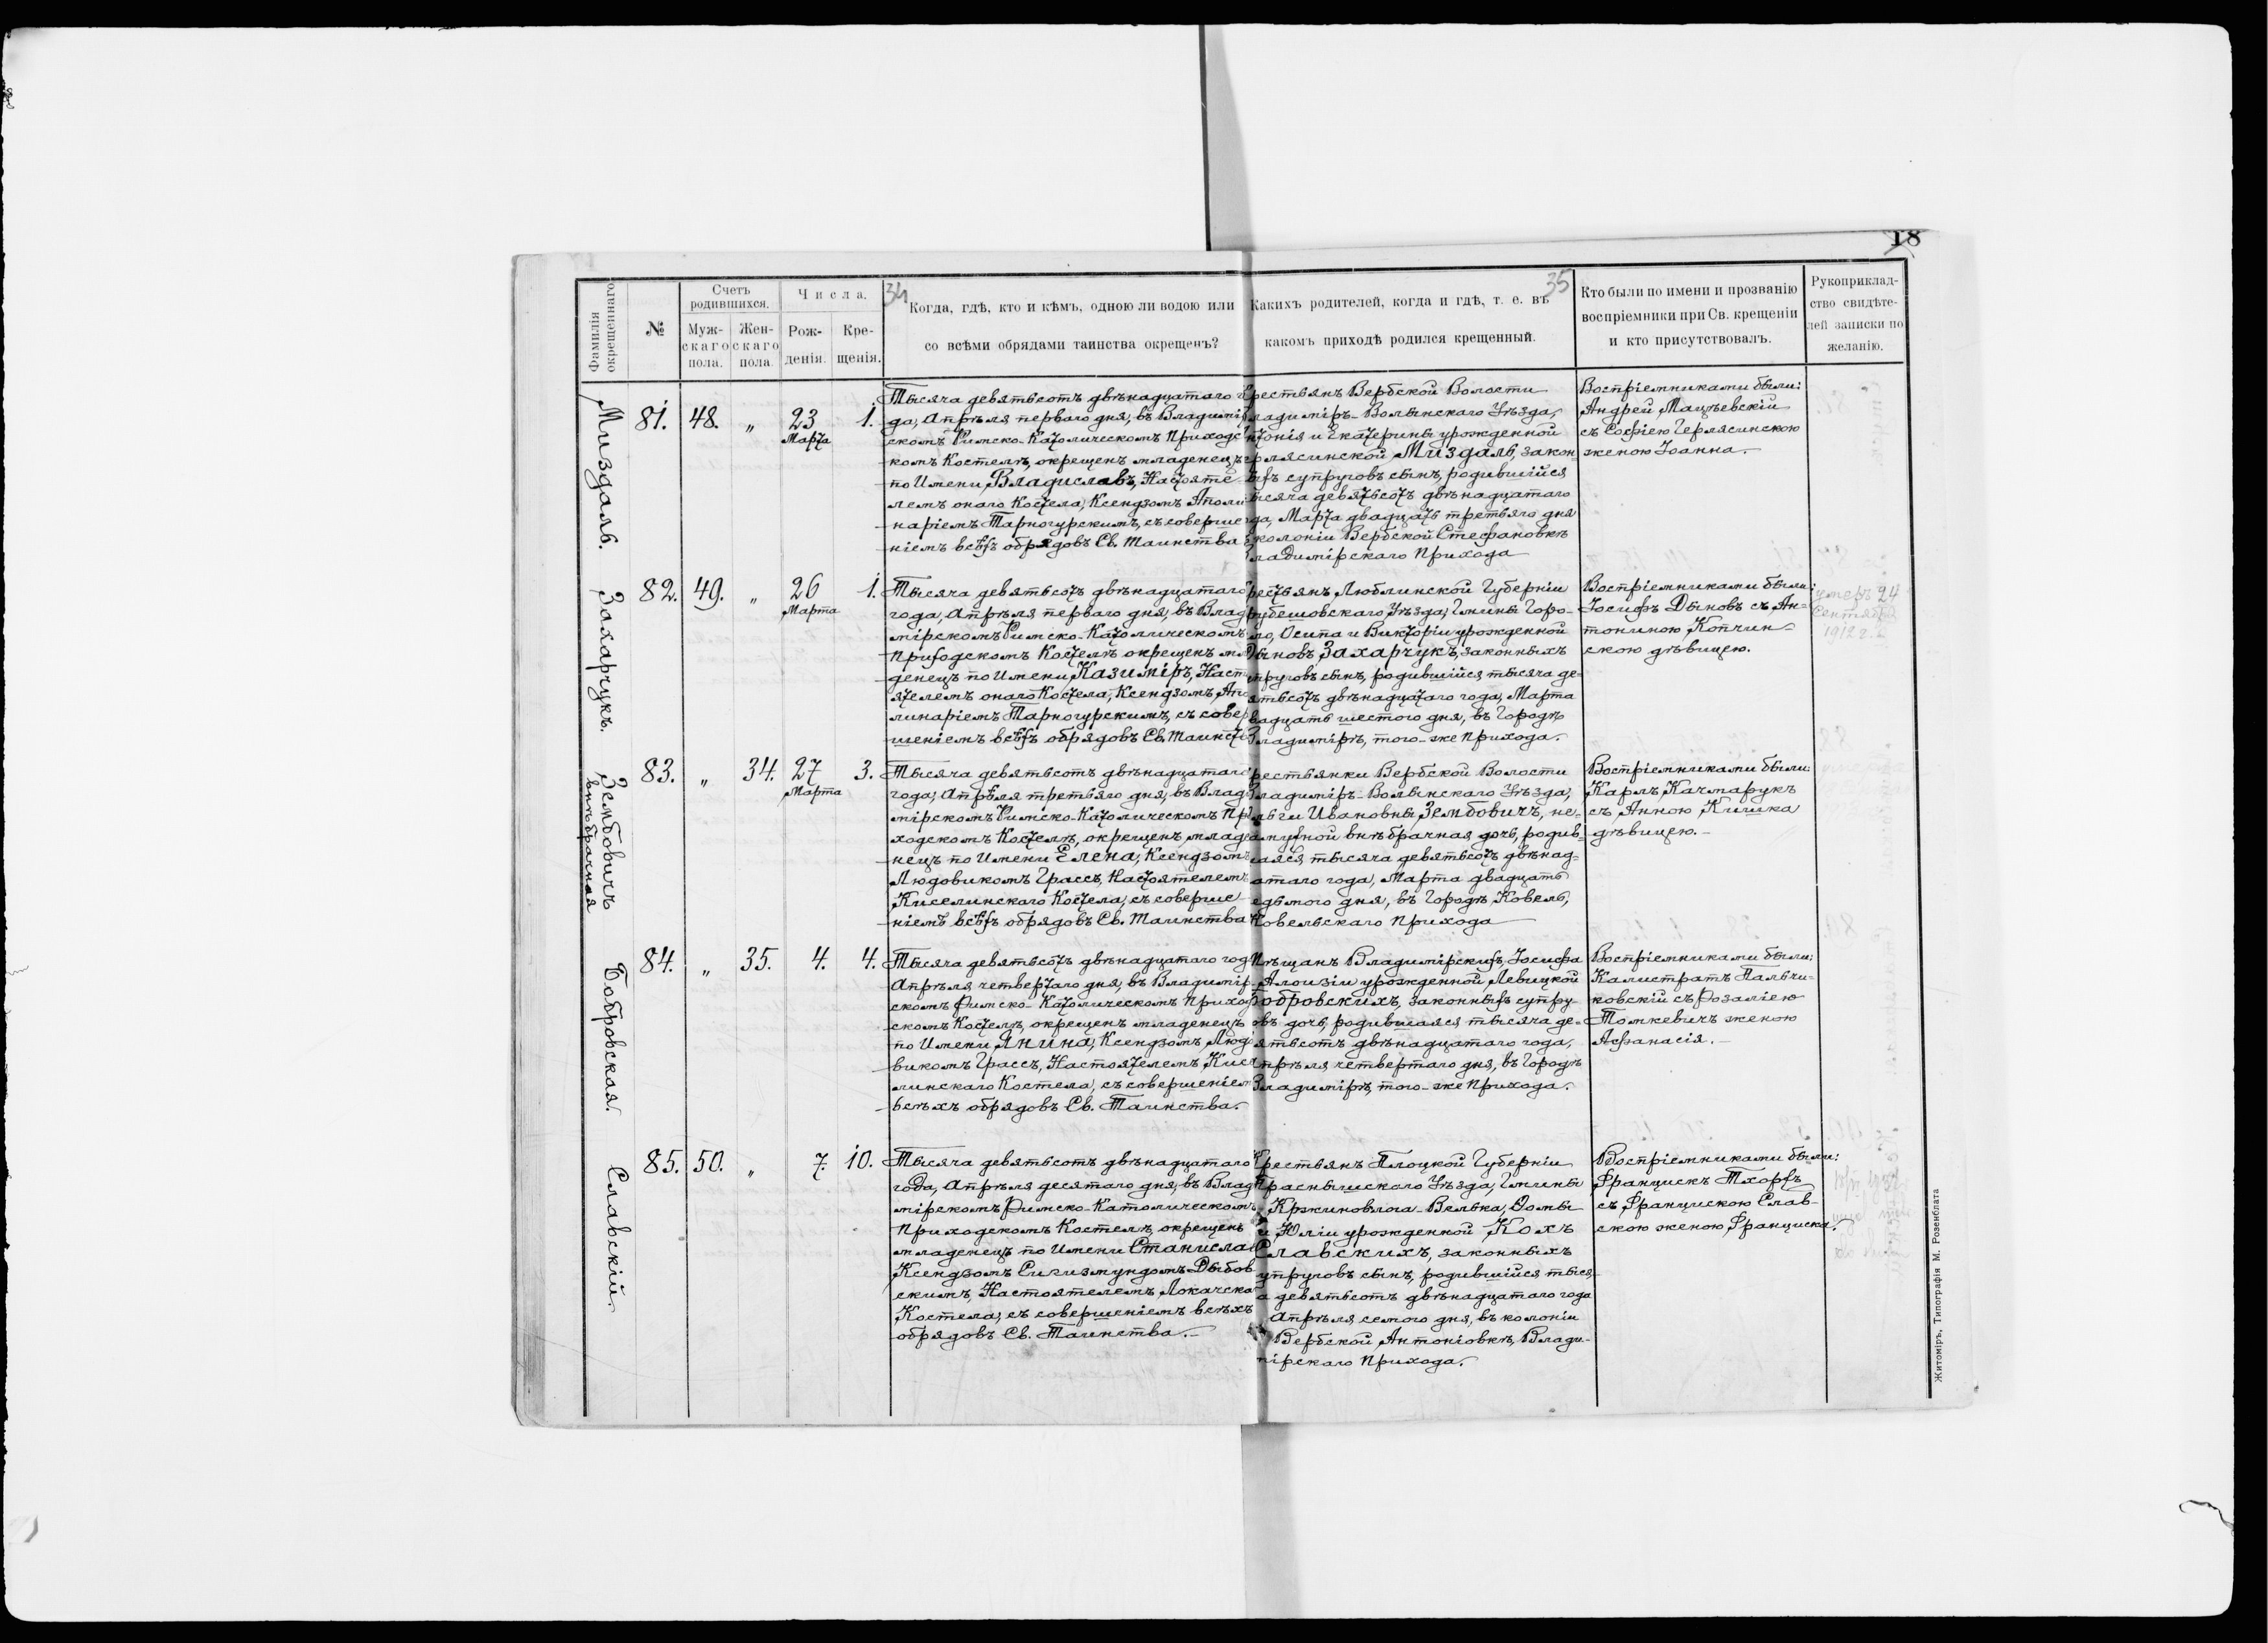 18
34
35
Фамилія
окрещеннаго
№
Счетъ
родившихся.
Муж-
скаго
пола.
Жен-
скаго
пола.
Числа.
Рож-
денія.
Кре-
щенія.
Когда, гдѣ, кто и кѣмъ, одною ли водою или
со всѣми обрядами таинства окрещенъ?
Какихъ родителей, когда и гдѣ, т. е. въ
какомъ приходѣ родился крещенный.
Кто были по имени и прозванію
воспріемники при Св. крещеніи
и кто присутствовалъ.
Рукоприклад-
ство свидѣте-
лей записки по
желанію.
Миздаль.
81. 48. „ 23 Марта 1.
Тысяча девятьсотъ двѣнадцатаго
да, Апрѣля перваго дня, въ Владимі
скомъ Римско-Католическомъ Приходс
комъ Костелѣ, окрещенъ младенецъ
по Имени Владиславъ, Настояте-
лемъ онаго Костела, Ксендзомъ Аполи
наріемъ Тарногурскимъ, съ соверше
ніемъ всѣхъ обрядовъ Св. Таинства
рестьянъ Вербской Волости
ладиміръ-Волынскаго Уѣзда,
нтонія и Екатерины урожденной
рлясинской Миздаль, закон
ыхъ супруговъ сынъ, родившійся
ысяча девятьсотъ двѣнадцатаго
да, Марта двадцать третьяго дня
колоніи Вербской Стефановкѣ
ладимірскаго Прихода
Воспріемниками были:
Андрей Мацѣевскій
съ Софіею Герлясинскою
женою Іоанна.
Захарчукъ.
82. 49. „ 26 Марта 1.
Тысяча девятьсотъ двѣнадцатаго
года, Апрѣля перваго дня, въ Влад
мірскомъ Римско-Католическомъ
Приходскомъ Костелѣ окрещенъ мла
денецъ по Имени Казиміръ, Наст
ятелемъ онаго Костела, Ксендзомъ Апо
линаріемъ Тарногурскимъ, съ совер
шеніемъ всѣхъ обрядовъ Св. Таинст
рестьянъ Люблинской Губерніи
рубешовскаго Уѣзда, Гмины Горо-
ло, Осипа и Викторіи урожденной
Дыновъ Захарчукъ, законныхъ
упруговъ сынъ, родившійся тысяча де-
ятьсотъ двѣнадцатаго года, Марта
вадцать шестого дня, въ Городѣ
Владимірѣ, того-же Прихода.
Воспріемниками были:
Іосифъ Дыновъ съ Ан-
тониною Копчин-
скою дѣвицею.
умеръ 24
Сентяб
1912 г.
Зембовичъ
внѣбрачная
83. „ 34. 27 Марта 3.
Тысяча девятьсотъ двѣнадцатаго
года, Апрѣля третьяго дня, въ Влад
мірскомъ Римско-Католическомъ Пр
ходскомъ Костелѣ, окрещенъ младе
нецъ по Имени Елена, Ксендзомъ
Людовикомъ Грассъ, Настоятелемъ
Киселинскаго Костела, съ соверше
ніемъ всѣхъ обрядовъ Св. Таинства
рестьянки Вербской Волости
Владиміръ-Волынскаго Уѣзда,
льги Ивановны Зембовичъ, не-
амужной внѣбрачная дочь, родив-
аяся тысяча девятьсотъ двѣнад-
атаго года, Марта двадцать
едьмого дня, въ Городѣ Ковель,
Ковельскаго Прихода
Воспріемниками были:
Карлъ Качмарукъ
съ Анною Кишка
дѣвицею.
Бобровская.
84. „ 35. 4. 4.
Тысяча девятьсотъ двѣнадцатаго год
Апрѣля четвертаго дня, въ Владимір-
скомъ Римско-Католическомъ Прихо
скомъ Костелѣ, окрещенъ младенецъ
по Имени Янина, Ксендзомъ Людо
викомъ Грассъ, Настоятелемъ Кисе
линскаго Костела, съ совершеніем
всѣхъ обрядовъ Св. Таинства.
Мѣщанъ Владимірскихъ Іосифа
Алоизіи урожденной Левицкой
Бобровскихъ, законныхъ супру-
овъ дочь, родившаяся тысяча де-
ятьсотъ двѣнадцатаго года,
прѣля четвертаго дня, въ Городѣ
Владимірѣ, того-же Прихода.
Воспріемниками были:
Калистратъ Пальчи-
ковскій съ Розаліею
Томкевичъ женою
Афанасія.
Славскій.
85. 50. „ 7. 10.
Тысяча девятьсотъ двѣнадцатаго
года, Апрѣля десятаго дня, въ Влад
мірскомъ Римско-Католическомъ
Приходскомъ Костелѣ, окрещенъ
младенецъ по Имени Станислав
Ксендзомъ Сигизмундомъ Дыбов
скимъ, Настоятелемъ Локачска
Костела, съ совершеніемъ всѣхъ
обрядовъ Св. Таинства.
Крестьянъ Плоцкой Губерніи
Праснышскаго Уѣзда, Гмины
Кржиновлога-Велька, Фомы
и Юліи урожденной Кохъ
Славскихъ, законныхъ
упруговъ сынъ, родившійся тыся-
а девятьсотъ двѣнадцатаго года
Апрѣля семого дня, въ колоніи
Вербской Антоніовкѣ, Влади-
мірскаго Прихода.
Воспріемниками были:
Францискъ Тхоржъ
съ Францискою Слав-
скою женою Франциска.
Житоміръ, Типографія М. Розенблата